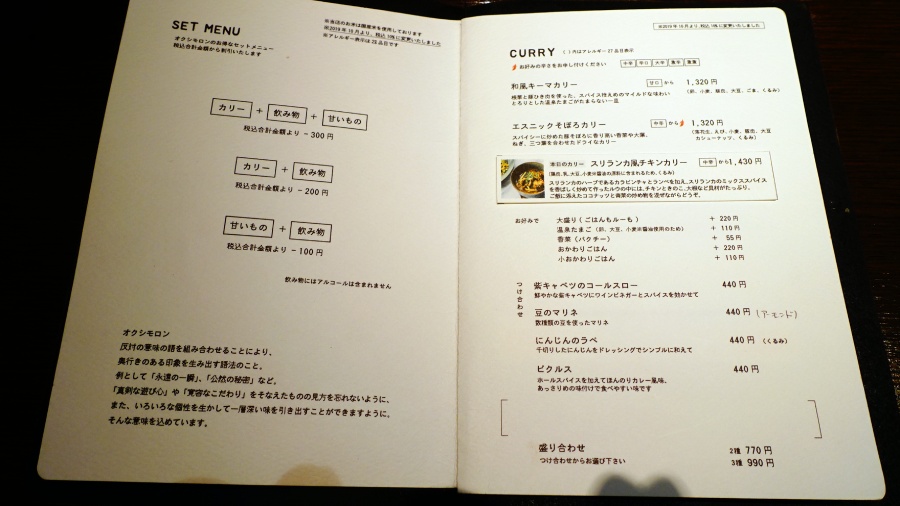 SET MENU
オクシモロンのお得なセットメニュー
税込合計金額から割引いたします
※当店のお米は国産米を使用しております
※2019年10月より、税込10%に変更いたしました
※アレルギー表示は28品目です
カリー + 飲み物 + 甘いもの
税込合計金額より −300円
カリー + 飲み物
税込合計金額より −200円
甘いもの + 飲み物
税込合計金額より −100円
飲み物にはアルコールは含まれません
オクシモロン
反対の意味の語を組み合わせることにより、
奥行きのある印象を生み出す語法のこと。
例として「永遠の一瞬」、「公然の秘密」など。
「真剣な遊び心」や「寛容なこだわり」をそなえたものの見方を忘れないように、
また、いろいろな個性を生かして一層深い味を引き出すことができますように。
そんな意味を込めています。
※2019年10月より、税込10%に変更いたしました
CURRY ( )内はアレルギー27品目表示
お好みの辛さをお申し付けください
和風キーマカリー 甘口 から 1,320円
根菜と豚ひき肉を使った、スパイス控えめのマイルドな味わい
とろりとした温泉たまごがたまらない一皿
(卵、小麦、豚肉、大豆、ごま、くるみ)
エスニックそぼろカリー 中辛 から 1,320円
スパイシーに炒めた豚そぼろに香り高い香菜や大葉、
ねぎ、三つ葉を合わせたドライなカリー
(落花生、えび、小麦、豚肉、大豆
カシューナッツ、くるみ)
本日のカリー スリランカ風チキンカリー 中辛 から 1,430円
(鶏肉、乳、大豆、小麦※醤油の原料に含まれるため、くるみ)
スリランカのハーブであるカラピンチャとランペを加え、スリランカのミックススパイス
を香ばしく炒めて作ったルウの中には、チキンときのこ、大根など具材がたっぷり。
ご飯に添えたココナッツと青菜の炒め物を混ぜながらどうぞ。
お好みで 大盛り(ごはんもルーも) + 220円
温泉たまご (卵、大豆、小麦※醤油使用のため) + 110円
香菜(パクチー) + 55円
おかわりごはん + 220円
小おかわりごはん + 110円
つけ合わせ
紫キャベツのコールスロー 440円
鮮やかな紫キャベツにワインビネガーとスパイスを効かせて
豆のマリネ 440円 (アーモンド)
数種類の豆を使ったマリネ
にんじんのラペ 440円 (くるみ)
千切りしたにんじんをドレッシングでシンプルに和えて
ピクルス 440円
ホールスパイスを加えてほんのりカレー風味。
あっさりめの味付けで食べやすい味です
盛り合わせ 2種 770円
つけ合わせからお選び下さい 3種 990円